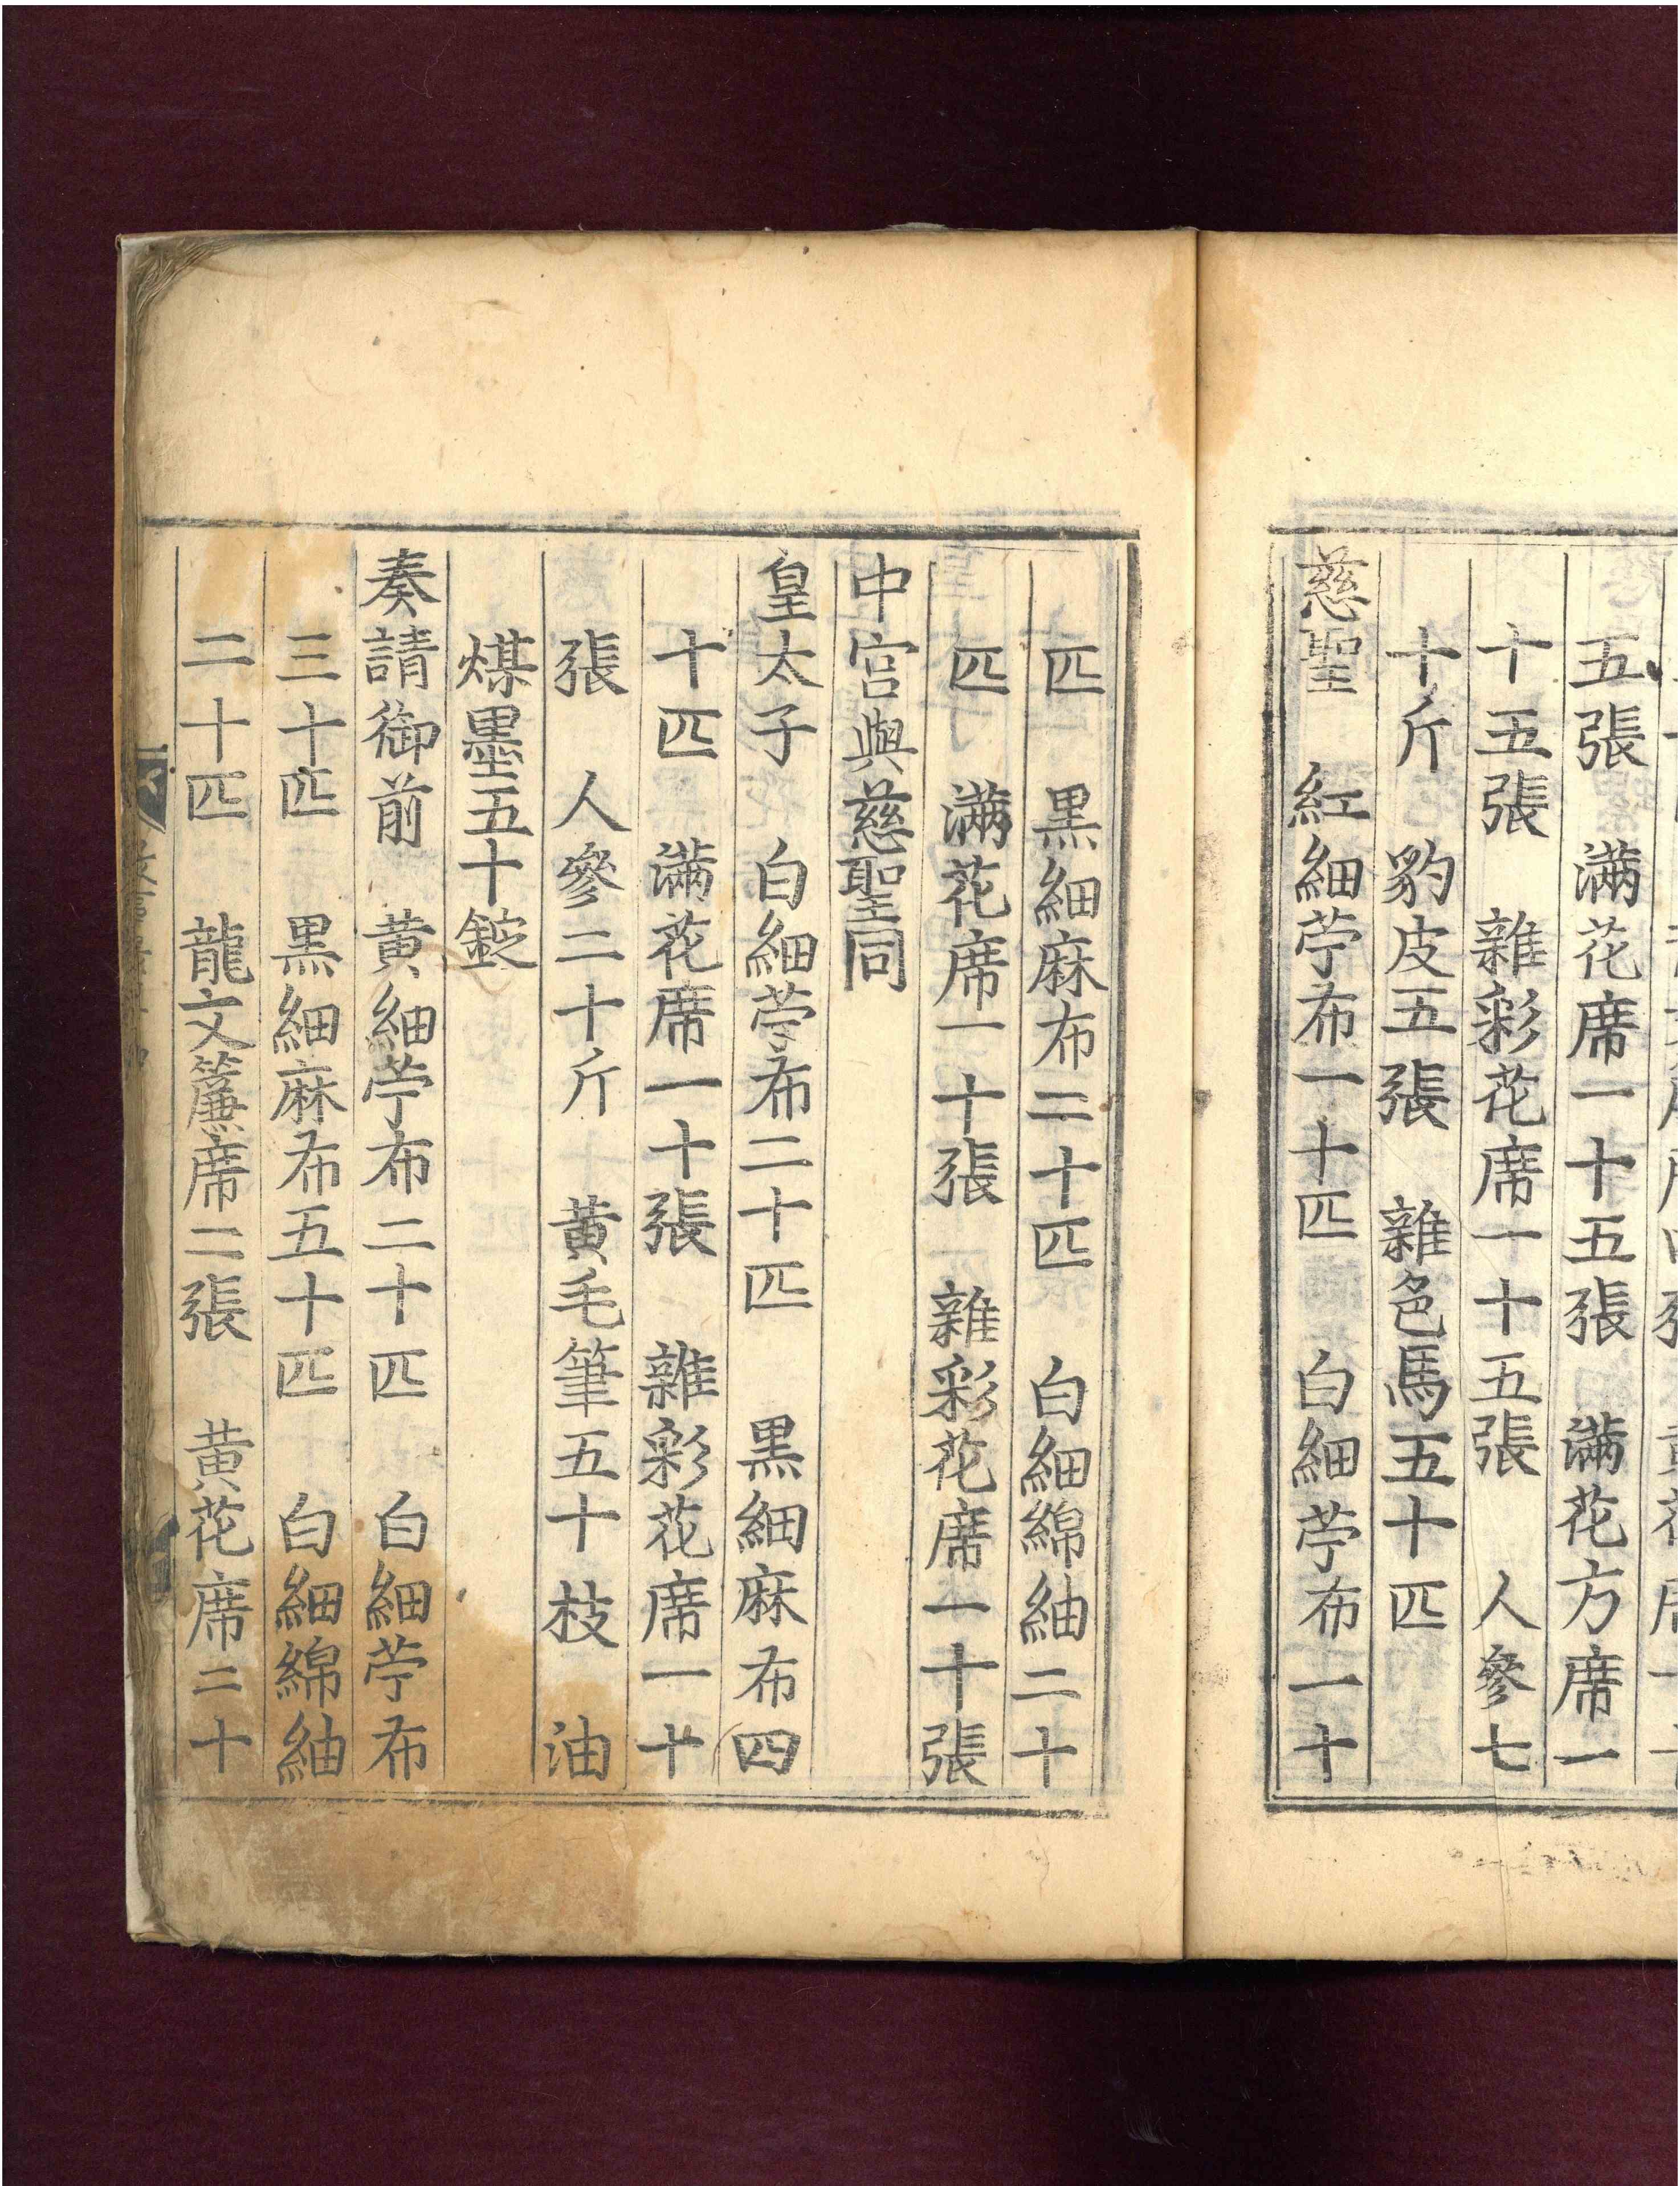 五張 滿花席一十五張 滿花方席一
十五張 雜彩花席一十五張 人參七
十斤 豹皮五張 雜色馬五十匹
慈聖 紅細苧布一十匹 白細苧布一十
匹 黑細麻布二十匹 白細綿紬二十
匹 滿花席一十張 雜彩花席一十張
中宮與慈聖同
皇太子 白細苧布二十匹 黑細麻布四
十匹 滿花席一十張 雜彩花席一十
張 人參二十斤 黃毛筆五十枝 油
煤墨五十錠
奏請御前 黃細苧布二十匹 白細苧布
三十匹 黑細麻布五十匹 白細綿紬
二十匹 龍文簾席二張 黃花席二十